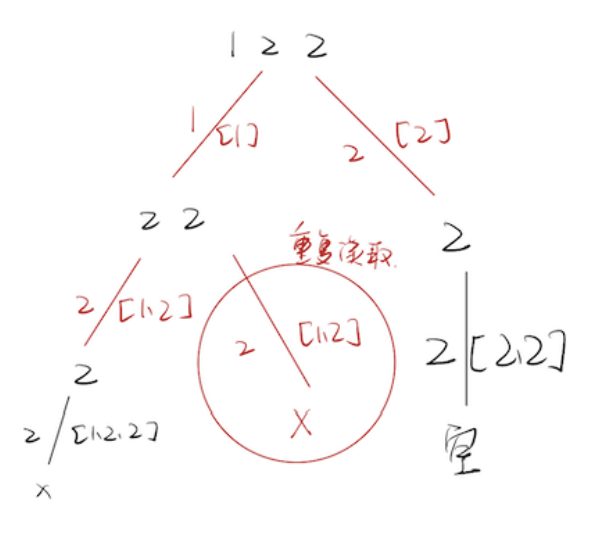 1 2 2
1 [1]
2 [2]
2 2
重复读取.
2
2 [1,2]
2 [1,2]
2 [2,2]
2
X
2 [1,2,2]
空
x